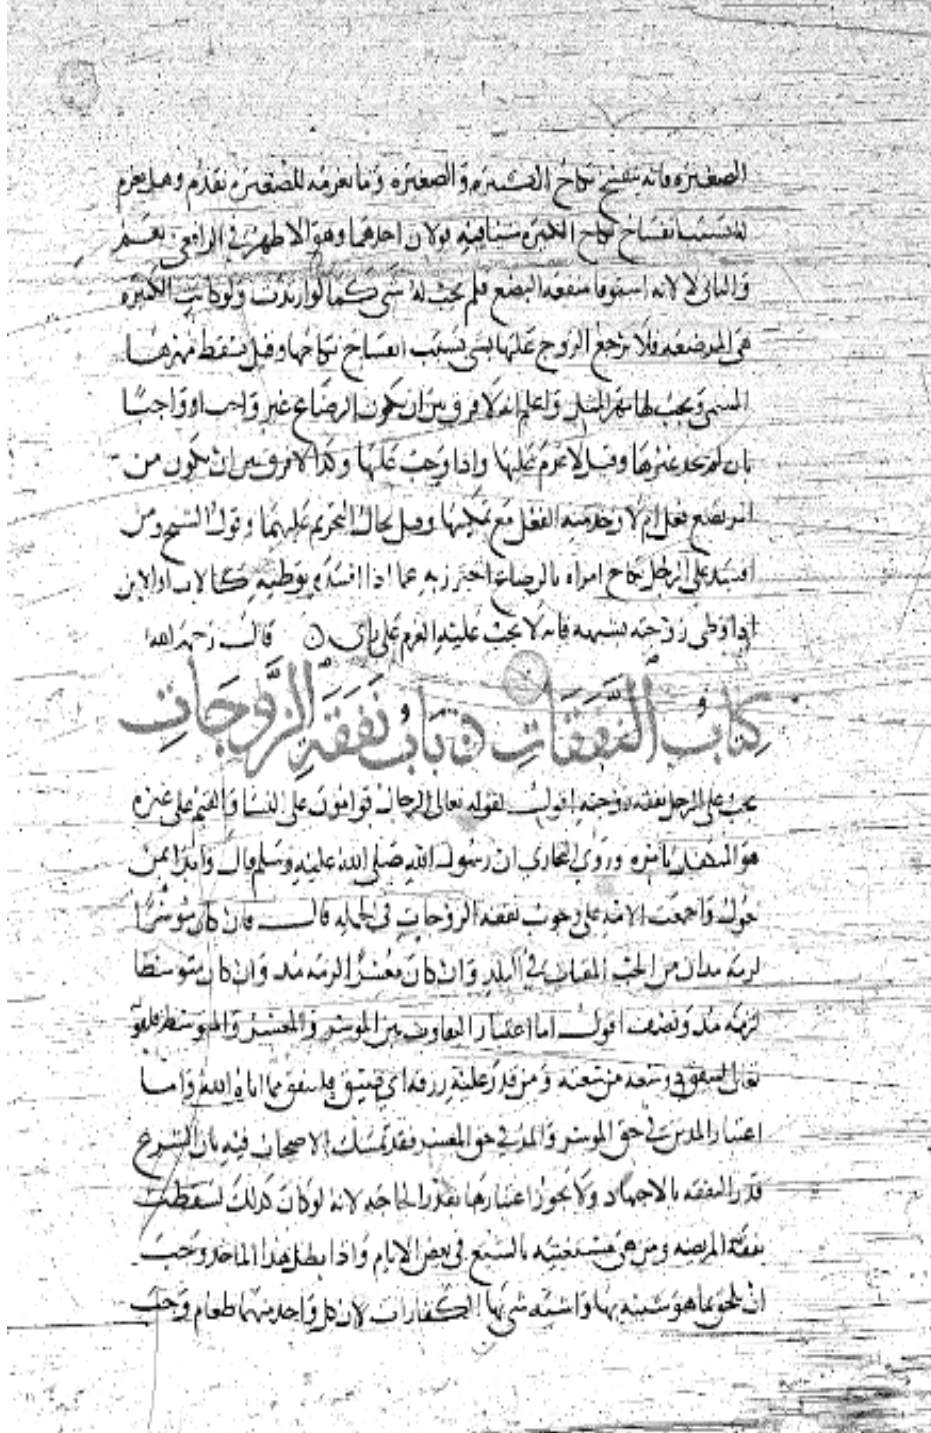 الصغيرة فانه ينفسخ نكاح الكبيرة والصغيرة وما يغرمه للصغيرة تقدم وهل يغرم
له بسبب انفساخ نكاح الكبيرة شيا فيه قولان احدهما وهو الاظهر في الرافعي نعم
والثاني لا لانه استوفا منفعة البضع فلم يجب له شي كما لو ارتدت ولو كانت الكبيرة
هي المرضعة فلا يرجع الزوج عليها بشي بسبب انفساخ نكاحها وقيل يسقط مهرها
المسمى ويجب لها مهر المثل واعلم انه لا فرق بين ان يكون الرضاع غير واجب او واجبا
بان لم يجد غيرها وقيل لا غرم عليها اذا وجب عليها وكذا لا فرق بين ان يكون من
ارتضع فعل ام لا وجد منه الفعل مع تمكينها وقيل يحال التحريم عليهما وقول الشيخ ومن
افسد على الرجل نكاح امراه بالرضاع احترز به عما اذا افسده بوطئه كالاب او الابن
اذا وطى زوجته بشبهه فانه لا يجب عليه الغرم على راي قال رحمه الله
كتاب النفقات باب نفقة الزوجات
يجب على الرجل نفقة زوجته اقول لقوله تعالى الرجال قوامون على النسا والقيم على غيره
هو المتكفل بامره وروى البخاري ان رسول الله صلى الله عليه وسلم قال وابدا بمن
تعول واجمعت الامة على وجوب نفقة الزوجات في الجملة قال فان كان موسرا
لزمه مدان من الحب المقتات في البلد وان كان معسرا لزمه مد وان كان متوسطا
لزمه مد ونصف اقول اما اعتبار التفاوت بين الموسر والمعسر والمتوسط فلقوله
تعالى لينفق ذو سعة من سعته ومن قدر عليه رزقه اي ضيق فلينفق مما اتاه الله واما
اعتبار المدين في حق الموسر والمد في حق المعسر فقد تمسك الاصحاب فيه بان الشرع
قدر النفقة بالاجتهاد ولا يجوز اعتبارها بقدر الحاجة لانه لو كان كذلك لسقطت
نفقة المريضة ومن هي مستغنية بالشبع في بعض الايام واذا بطل هذا الماخذ وجب
ان تلحق بما هو شبيه بها واشبه شي بها الكفارات لان كل واحد منهما طعام وجب